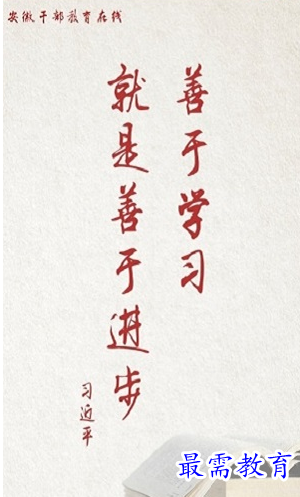 安徽干部教育在线
善于学习
就是善于进步
习近平
最需教育